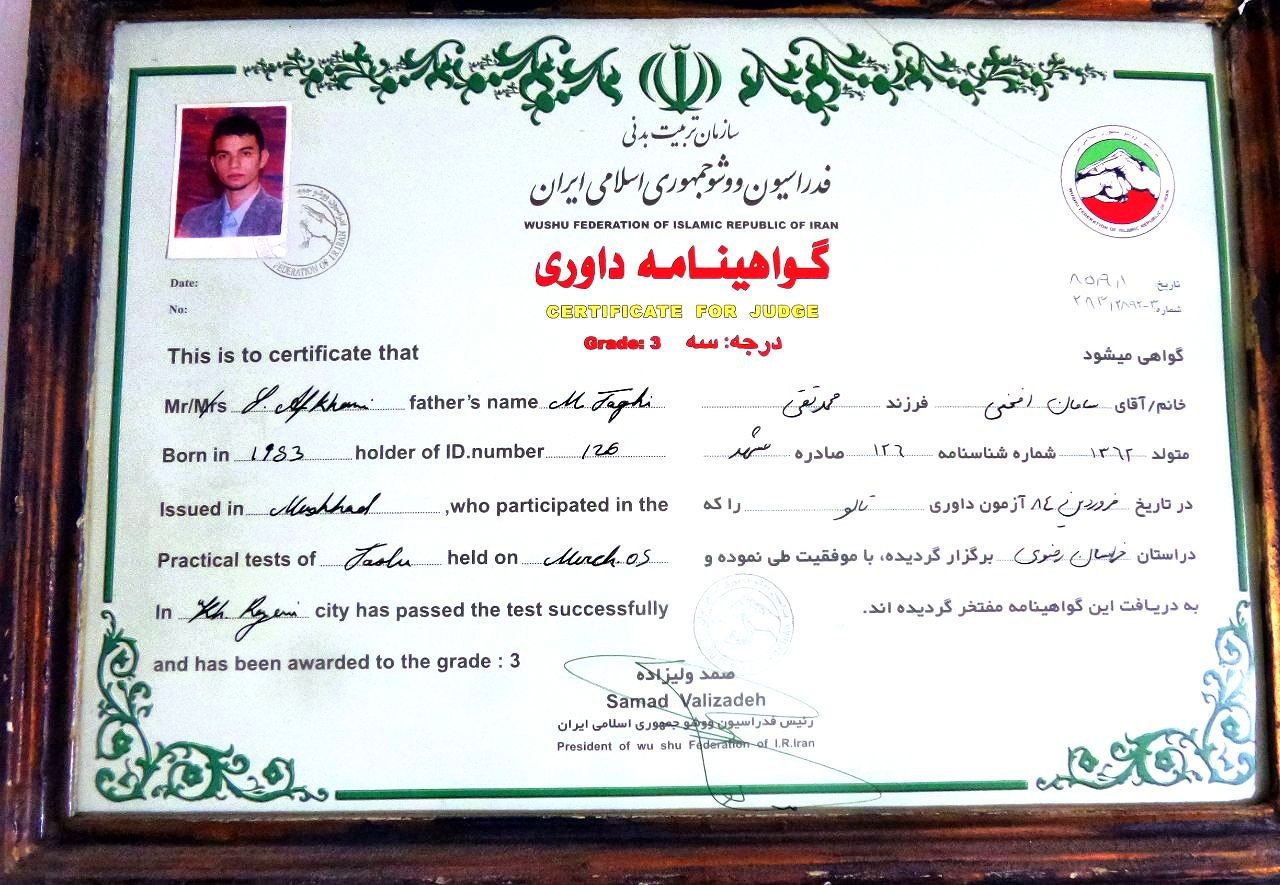 سازمان تربیت بدنی
فدراسیون ووشو جمهوری اسلامی ایران
WUSHU FEDERATION OF ISLAMIC REPUBLIC OF IRAN
گواهینامه داوری
CERTIFICATE FOR JUDGE
Grade: 3 درجه: سه
WUSHU FEDERATION OF ISLAMIC REPUBLIC OF IRAN
FEDERATION OF I.R.IRAN
Date:
No:
تاریخ ۸۵/۹/۱
شماره
This is to certificate that
Mr/Mrs S. Afkhami father's name M. Taghi
Born in 1983 holder of ID.number 126
Issued in Mashhad ,who participated in the
Practical tests of Taolu held on March.05
In Kh. Razavi city has passed the test successfully
and has been awarded to the grade : 3
گواهی میشود
خانم/آقای سامان افخمی فرزند محمدتقی
متولد ۱۳۶۲ شماره شناسنامه ۱۲۶ صادره مشهد
در تاریخ فروردین ۸٤ آزمون داوری تالو را که
دراستان خراسان رضوی برگزار گردیده، با موفقیت طی نموده و
به دریافت این گواهینامه مفتخر گردیده اند.
صمد ولیزاده
Samad Valizadeh
رئیس فدراسیون ووشو جمهوری اسلامی ایران
President of wu shu Federation of I.R.Iran